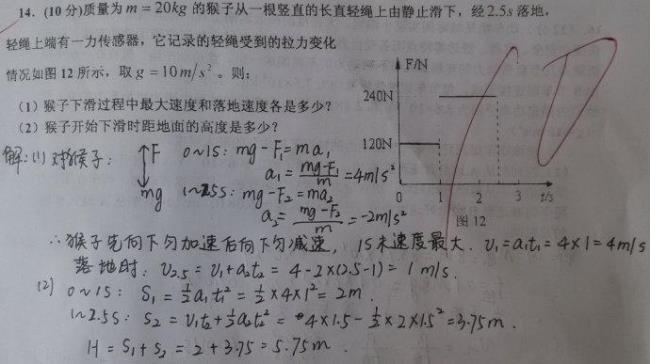 14. (10分)质量为 m = 20kg 的猴子从一根竖直的长直轻绳上由静止滑下，经2.5s 落地，
轻绳上端有一力传感器，它记录的轻绳受到的拉力变化
情况如图 12 所示，取 g = 10m/s²。则：
(1) 猴子下滑过程中最大速度和落地速度各是多少？
(2) 猴子开始下滑时距地面的高度是多少？
F/N
240N
120N
0 1 2 3 t/s
图 12
解:(1) 对猴子: F mg
0~1s: mg - F₁ = ma₁
a₁ = (mg-F₁)/m = 4m/s²
1~2.5s: mg - F₂ = ma₂
a₂ = (mg-F₂)/m = -2m/s²
∴ 猴子先向下匀加速后向下匀减速, 1s末速度最大. v₁ = a₁t₁ = 4×1 = 4m/s
落地时: v₂.₅ = v₁ + a₂t₂ = 4 - 2×(2.5-1) = 1 m/s.
(2) 0~1s: S₁ = ½a₁t₁² = ½×4×1² = 2m.
1~2.5s: S₂ = v₁t₂ + ½a₂t₂² = 4×1.5 - ½×2×1.5² = 3.75m.
H = S₁ + S₂ = 2 + 3.75 = 5.75m.